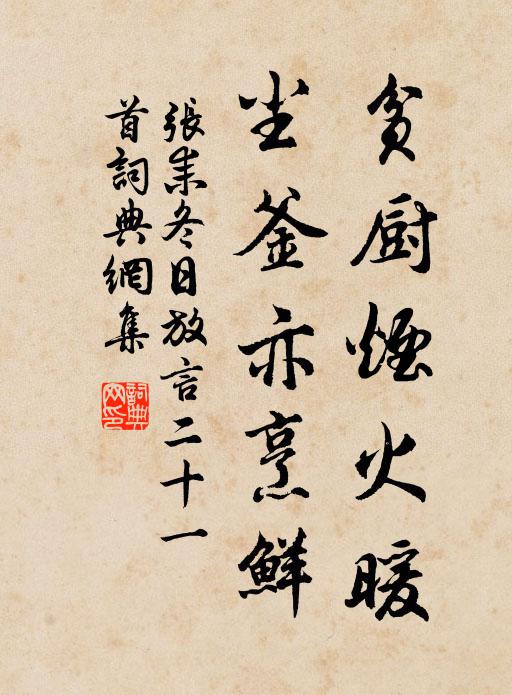 貧厨煙火暖
尘釜亦烹鮮
張耒冬日放言二十一
首詞典網集
詞典
网印